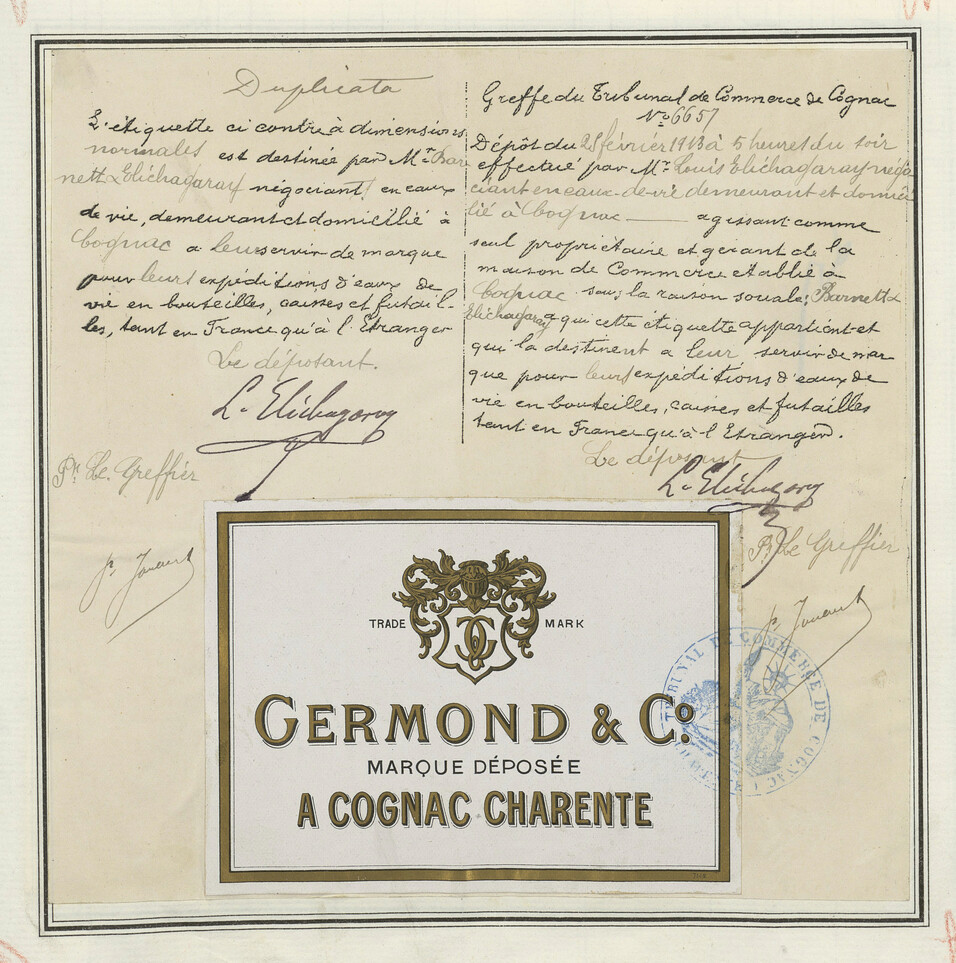 Duplicata
L'étiquette ci contre à dimensions
normales est destinée par Mr. Bar
nett & Elichagaray négociant en eaux
de vie, demeurant et domicilié à
Cognac a leur servir de marque
pour leurs expéditions d'eaux de
vie en bouteilles, caisses et futail-
les, tant en France qu'à l'Etranger
Le déposant.
L. Elichagaray
Pr. Le Greffier
Greffe du Tribunal de Commerce de Cognac
No 6657
Dépôt du 25 février 1913 à 5 heures du soir
effectué par Mr. Louis Elichagaray négo
ciant en eaux-de-vie demeurant et domici
lié à Cognac agissant comme
seul propriétaire et gérant de la
maison de Commerce établie à
Cognac sous la raison sociale: Barnett &
Elichagaray à qui cette étiquette appartient et
qui la destinent a leur servir de mar
que pour leurs expéditions d'eaux de
vie en bouteilles, caisses et futailles
tant en France qu'à l'Etranger.
Le déposant
L. Elichagaray
Pr. Le Greffier
TRADE MARK
GERMOND & Co.
MARQUE DÉPOSÉE
A COGNAC CHARENTE
TRIBUNAL DE COMMERCE DE COGNAC